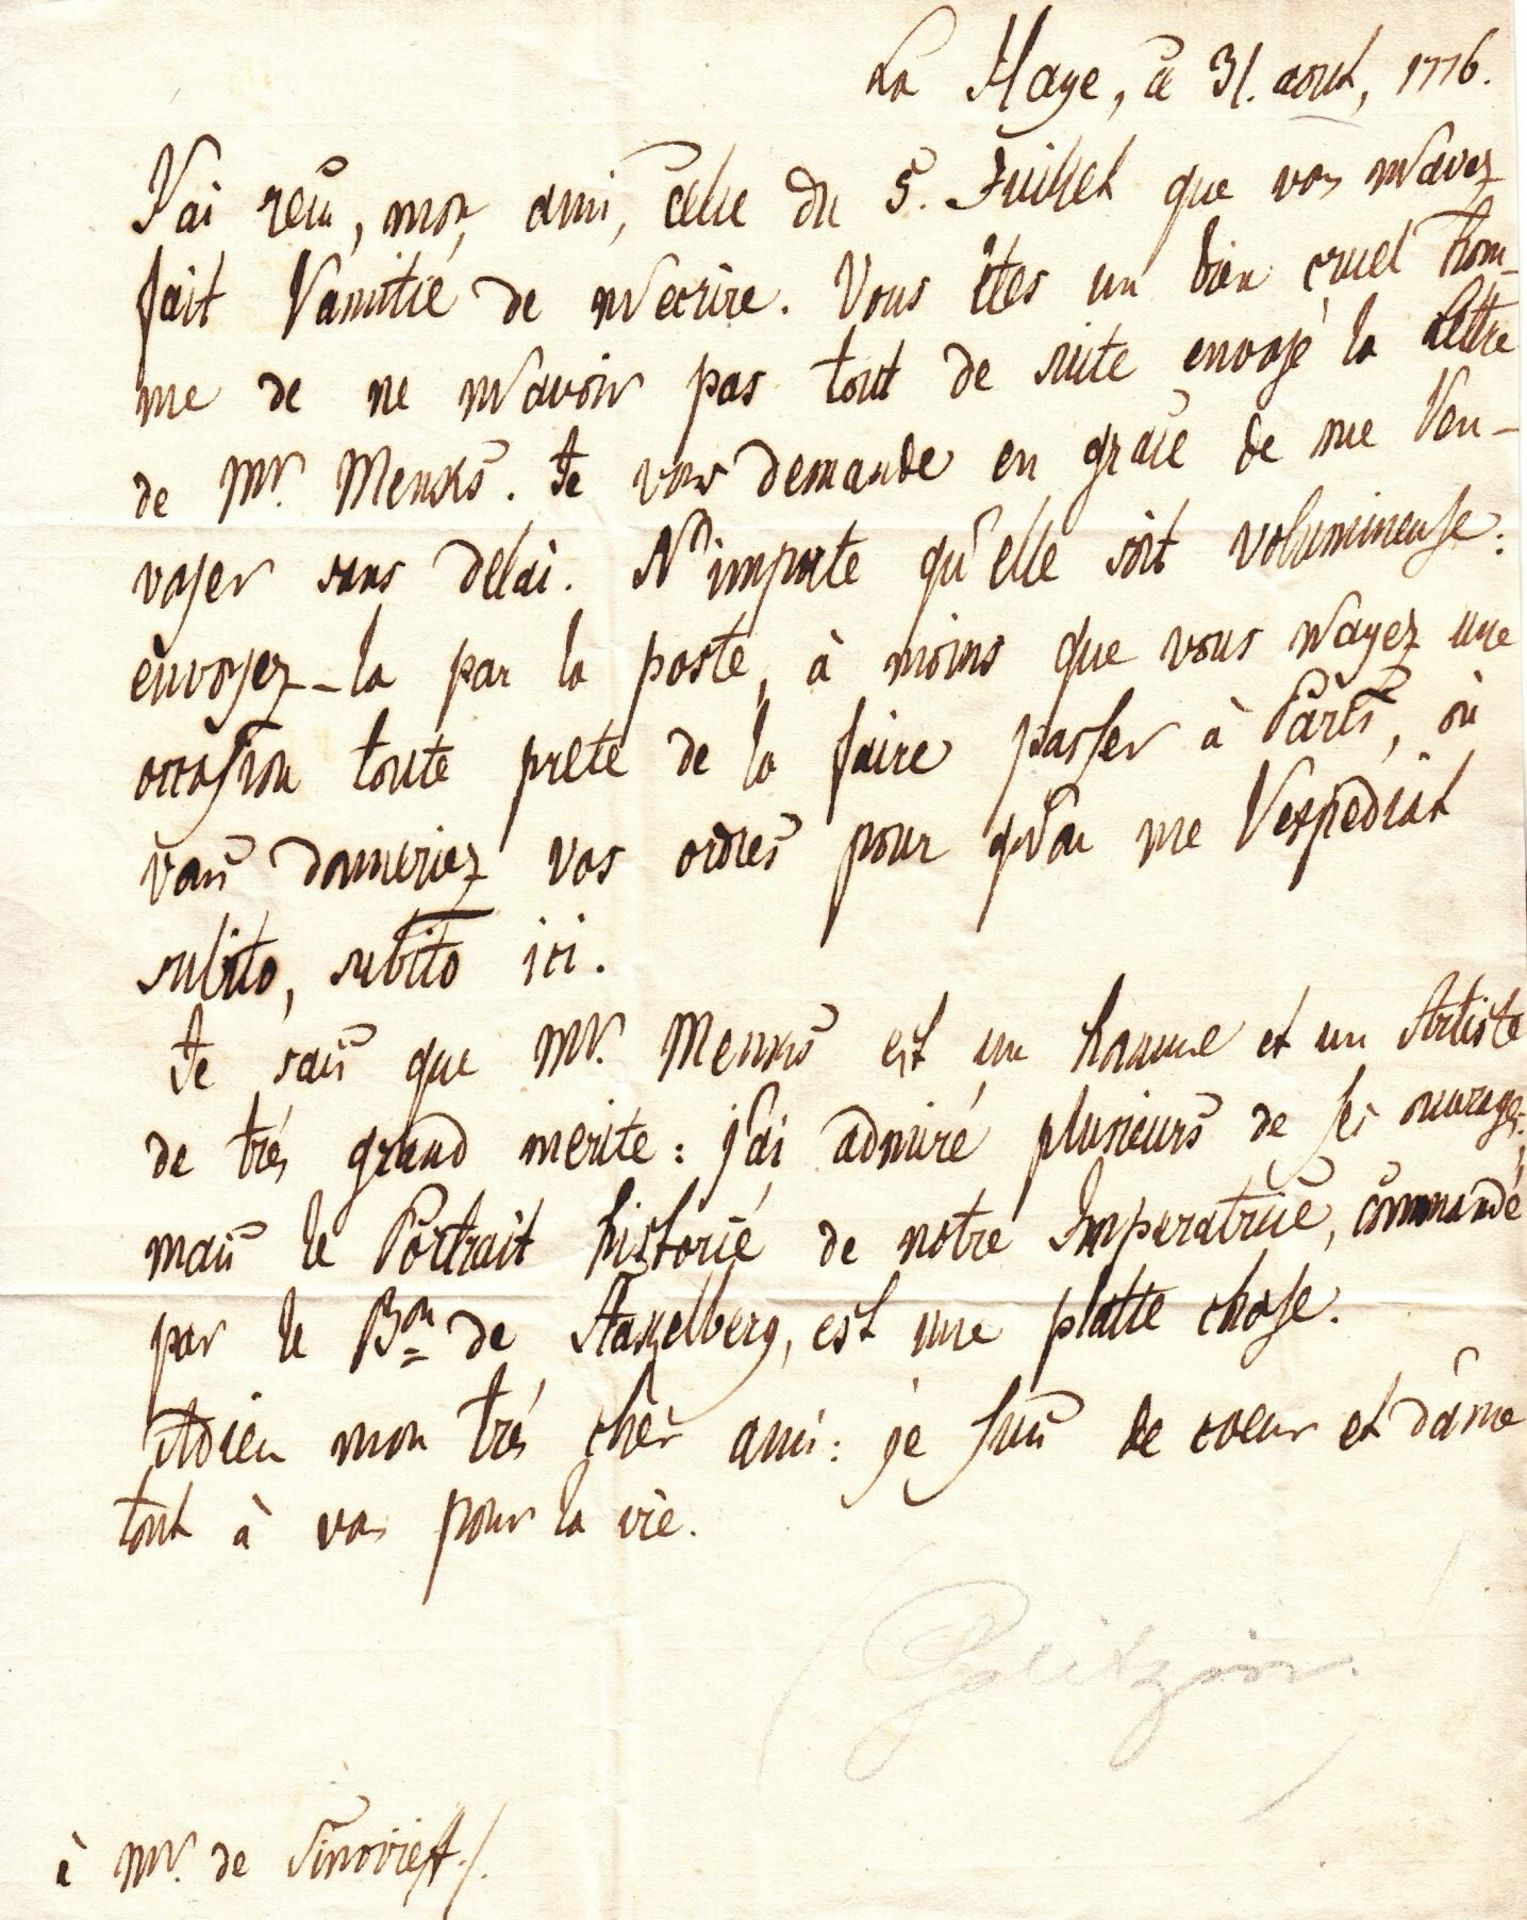 La Haye, ce 31. aout, 1776.
J'ai reçu, mon ami, celle du 5. Juillet que vous m'avez
fait l'amitié de m'ecrire. Vous êtes un bien cruel hom-
me de ne m'avoir pas tout de suite envoyé la lettre
de Mr. Menks. Je vous demande en grace de me l'en-
voyer sans delai. N'importe qu'elle soit volumineuse:
envoyez-la par la poste, à moins que vous n'ayez une
occasion toute prete de la faire passer à Paris, où
vous donneriez vos ordres pour qu'on me l'expediat
subito, subito ici.
Je sais que Mr. Menks est un homme et un Artiste
de trés grand merite: j'ai admiré plusieurs de ses ouvrages;
mais le Portrait historié de notre Imperatrice, commandé
par le Bon de Stakelberg, est une platte chose.
Adieu mon trés cher ami: je suis de coeur et d'ame
tout à vous pour la vie.
(Galitzin.)
à Mr. de Sinovieff./.